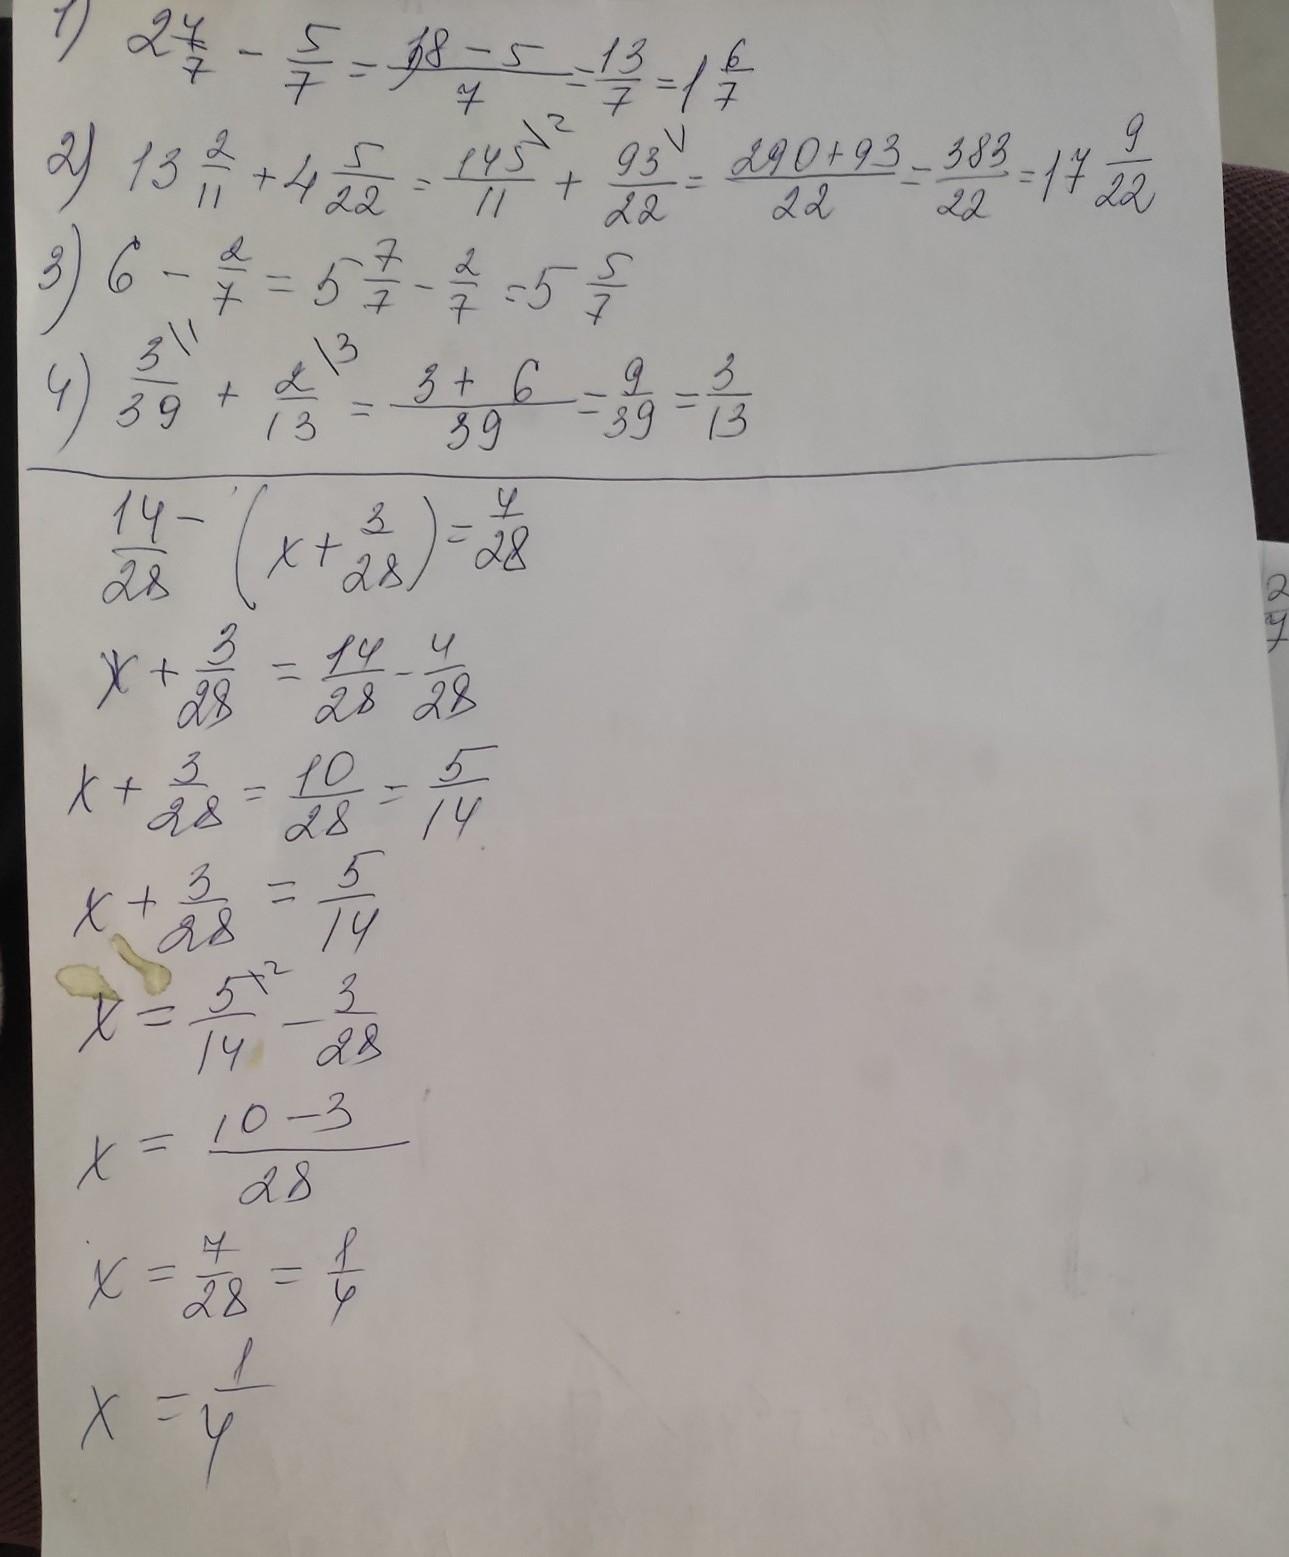 1) 2 4/7 - 5/7 = (18 - 5)/7 = 13/7 = 1 6/7
2) 13 2/11 + 4 5/22 = 145\2/11 + 93\1/22 = (290+93)/22 = 383/22 = 17 9/22
3) 6 - 2/7 = 5 7/7 - 2/7 = 5 5/7
4) 3\1/39 + 2\3/13 = (3 + 6)/39 = 9/39 = 3/13
14/28 - (x + 3/28) = 4/28
x + 3/28 = 14/28 - 4/28
x + 3/28 = 10/28 = 5/14
x + 3/28 = 5/14
x = 5\2/14 - 3/28
x = (10 - 3)/28
x = 7/28 = 1/4
x = 1/4